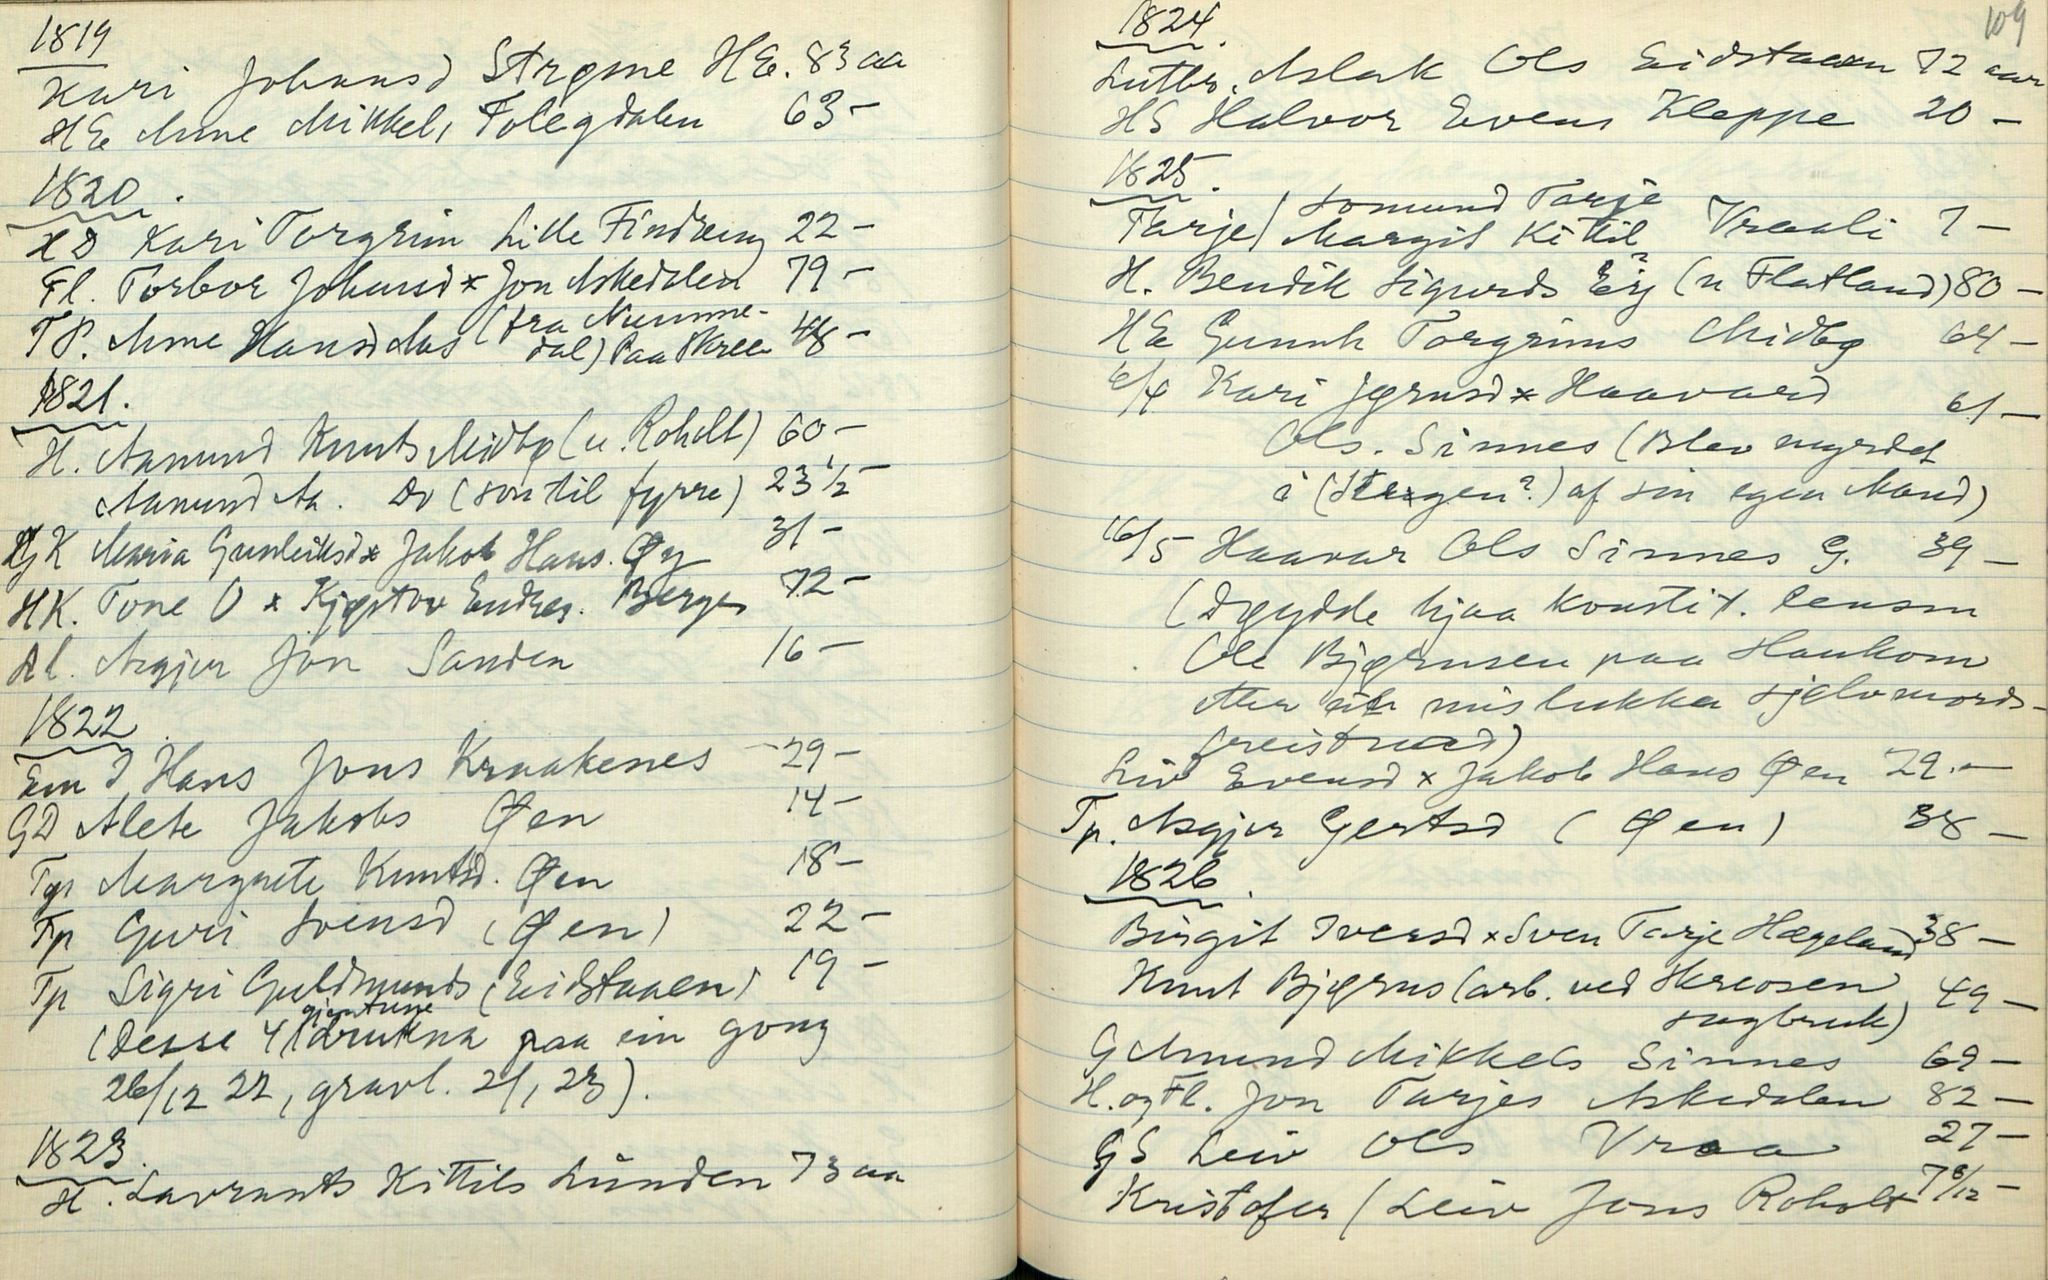 1819
Kari Johansd Strøme HE. 83 aa
HE Anne Mikkels Folegdalen 63 –
1820.
Kari Torgrim Lille Findreng 22 –
Fl. Torbor Johansd x Jon Askedalen 79 –
TP. Anne Hansd Aas (fra Numme- 48 –
dal) Paa Skree
1821.
H. Aamund Knuts Midbø (u. Roholt) 60 –
Aamund Aa. Do (son til fyrre) 23 1/2 –
GK Maria Gunleiksd x Jakob Hans. Øy 31 –
HK. Tone O x Kjøstov Endres. Berge 72 –
Al. Asgjer Jon Sanden 16 –
1822.
Em d Hans Jons Kraakenes – 29 –
GD Alete Jakobs Øen 14 –
Tp Margrete Knutsd. Øen 18 –
Tp Guri Svensd (Øen) 22 –
Tp Sigri Guldmunds (Eidstaaen) 19 –
gjentune
(Desse 4 drukna paa ein gong
26/12 22, gravl. 2/1, 23).
1823.
H. Lavrants Kittils Lunden 73 aa
109
1824.
Luthr. Aslak Ols Eidstaaen 72 aar
HS Halvor Evens Kleppe 20 –
1825.
Aamund Tarje
Tarje / Margit Kittil Vraali 7 –
H. Bendik Sigurds Eig (u Flatland) 80 –
HE Gunnh Torgrims Midbø 64 –
6/4 Kari Jørnsd x Haavard 61 –
Ols. Sinnes (Blev myrdet
i (Skogen?) af sin egen Mand)
16/5 Haavar Ols Sinnes G. 39 –
(Døydde hjaa konstit. lensm
Ole Bjørnsen paa Haukom
etter eit mislukka sjølvmords-
freistnad)
Liv Evensd x Jakob Hans Øen 29. –
Tp. Asgjer Gertsd (Øen) 38 –
1826.
Birgit Iversd x Sven Tarje Hægeland 38 –
Knut Bjørns (arb. ved Skreosen 49 –
sagbruk)
G Amund Mikkels Sinnes 69 –
H. og Fl. Jon Tarjes Askedalen 82 –
GS Leiv Ols Vraa 27 –
Kristofer / Leiv Jons Roholt 7 8/12 –